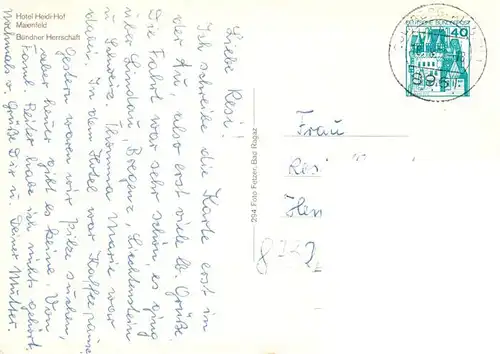 Hotel Heidi-Hof
Maienfeld
Bündner Herrschaft
Liebe Resi!
Ich schreibe die Karte erst in
der Au, also erst viele lb. Grüße.
Die Fahrt war sehr schön, es ging
über Lindau, Bregenz, Liechtenstein
u. Schweiz. Thomma Marie war
dabei. In dem Hotel war Kaffeepause
Gestern waren wir Pilze suchen,
aber heuer gibt es keine. Von
Fam. Reiter habe ich nichts gehört.
Nochmals v. Grüße Dir u. Deiner Mutter.
294 Foto Fetzer, Bad Ragaz
40
Frau
Resi
8221